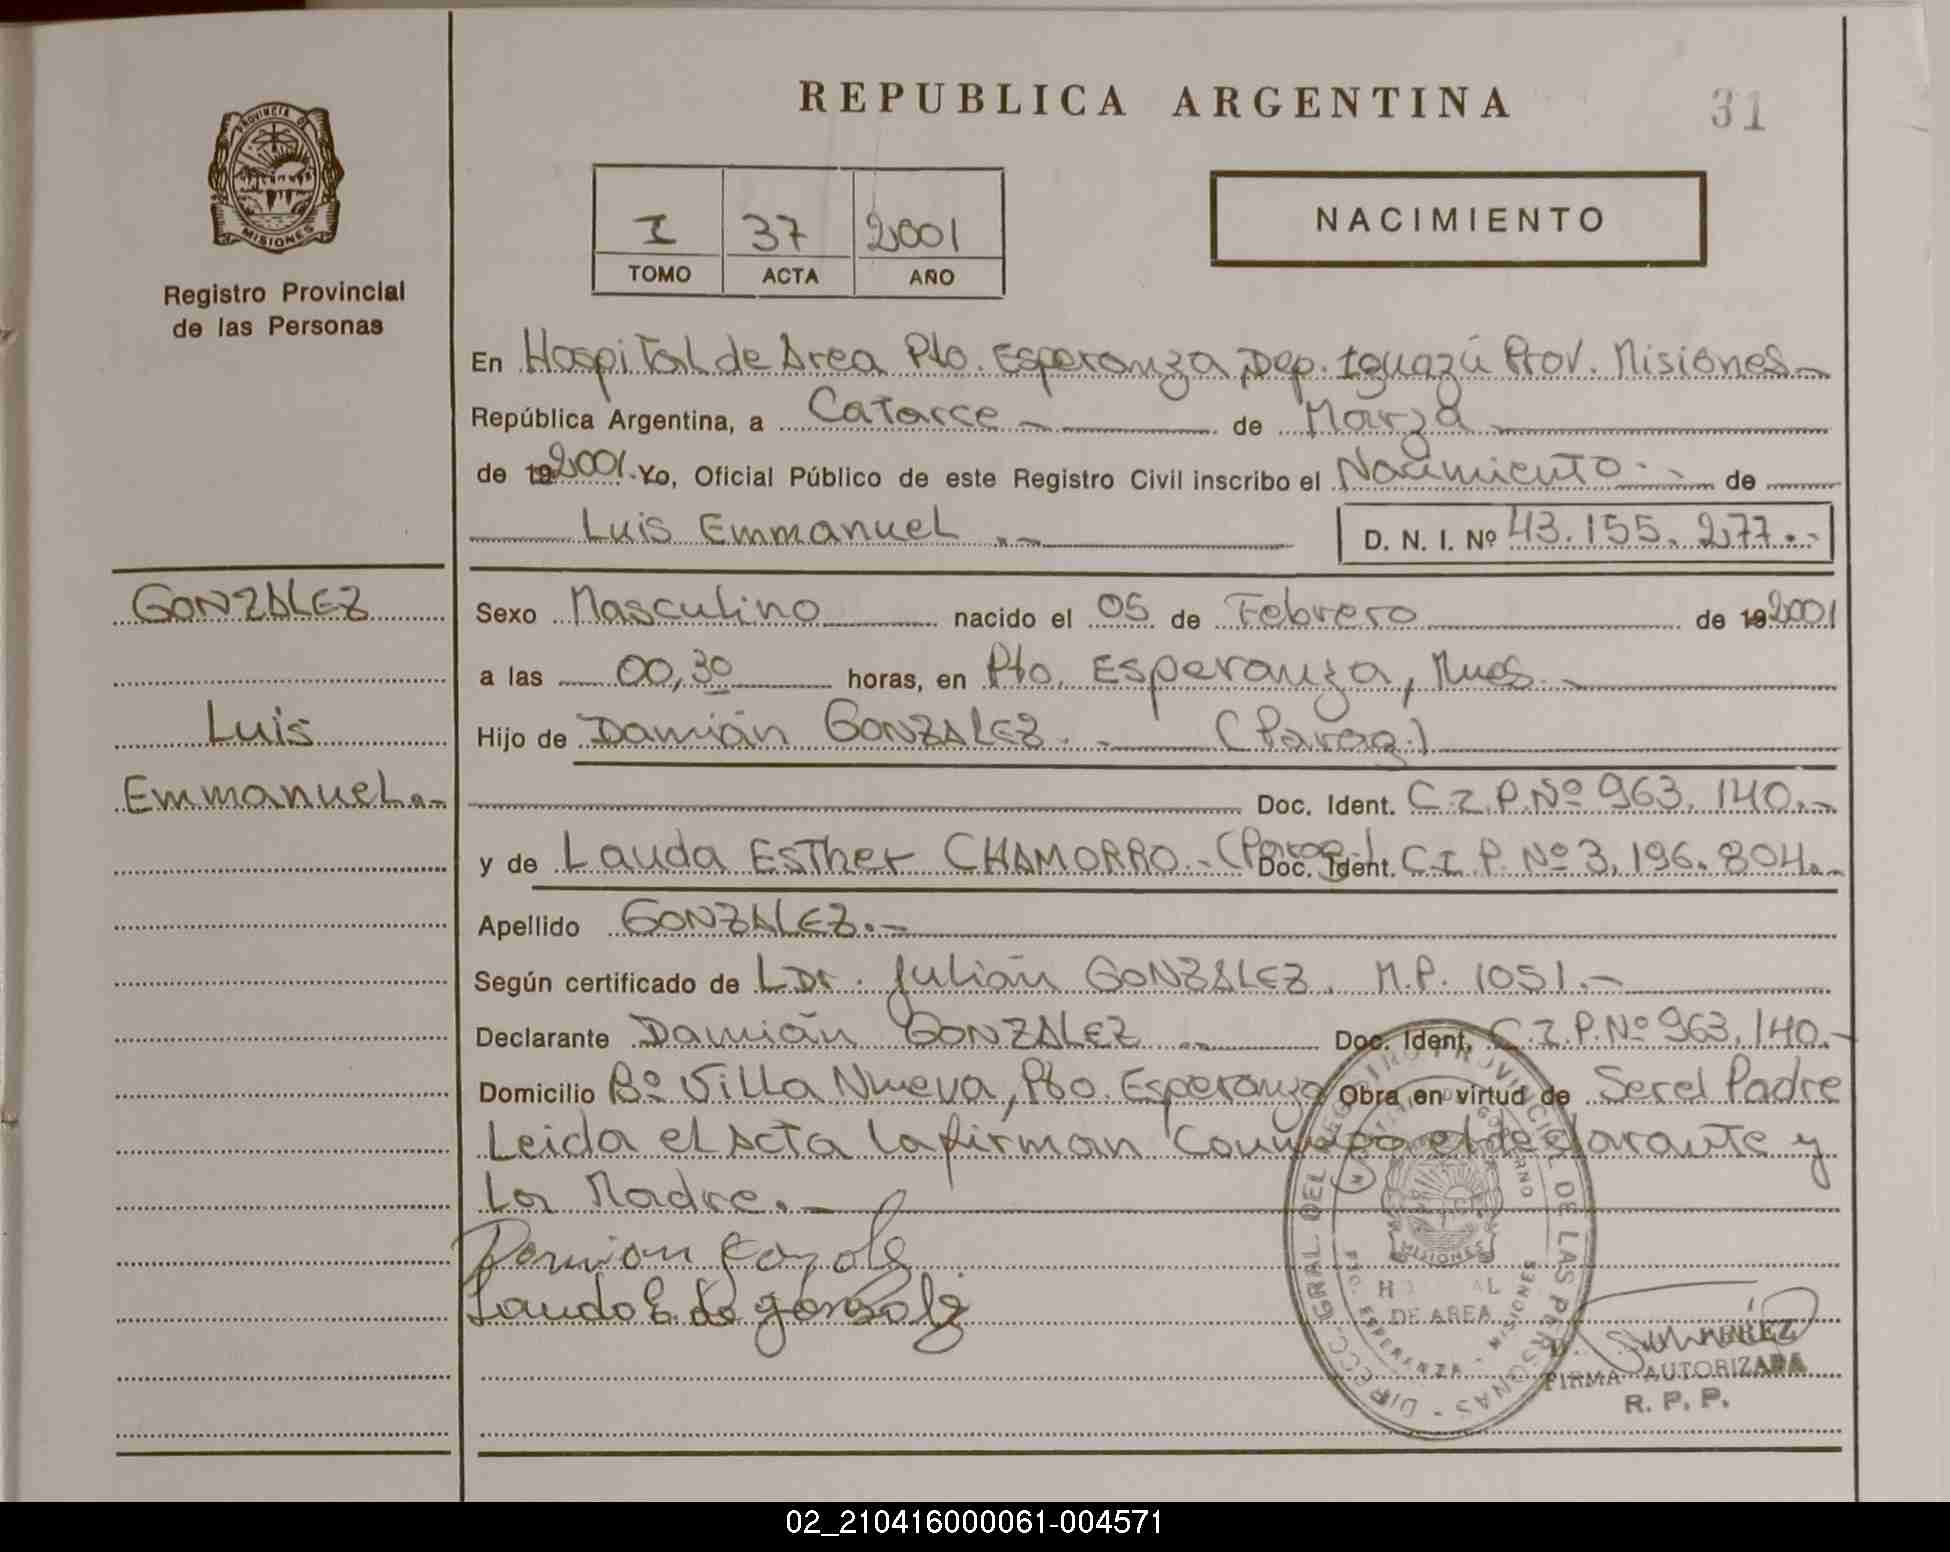 REPUBLICA ARGENTINA
31
PROVINCIA DE
MISIONES
Registro Provincial
de las Personas
I 37 2001
TOMO ACTA AÑO
NACIMIENTO
En Hospital de Area Pto. Esperanza, Dep. Iguazú Prov. Misiones.-
República Argentina, a Catorce.- de Marzo
de 19 2001. Yo, Oficial Público de este Registro Civil inscribo el Nacimiento.- de
Luis Emmanuel.- D. N. I. Nº 43.155.277.-
GONZALEZ
Luis
Emmanuel.-
Sexo Masculino nacido el 05 de Febrero de 19 2001
a las 00,30 horas, en Pto. Esperanza, Mnes.-
Hijo de Damián GONZALEZ.- (Parag.)
Doc. Ident. C.I.P. Nº 963.140.-
y de Lauda Esther CHAMORRO.- (Parag.) Doc. Ident. C.I.P. Nº 3.196.804.-
Apellido GONZALEZ.-
Según certificado de L Dr. Julián GONZALEZ. M.P. 1051.-
Declarante Damián GONZALEZ.- Doc. Ident. C.I.P. Nº 963.140.-
Domicilio Bº Villa Nueva, Pto. Esperanza Obra en virtud de Ser el Padre
Leida el Acta la firman conmigo el declarante y
la Madre.-
DIRECC. GRAL. DEL REGISTRO PROVINCIAL DE LAS PERSONAS
GOBIERNO
MISIONES
DE AREA
PTO. ESPERANZA - MISIONES
FIRMA AUTORIZADA
R. P. P.
02_210416000061-004571